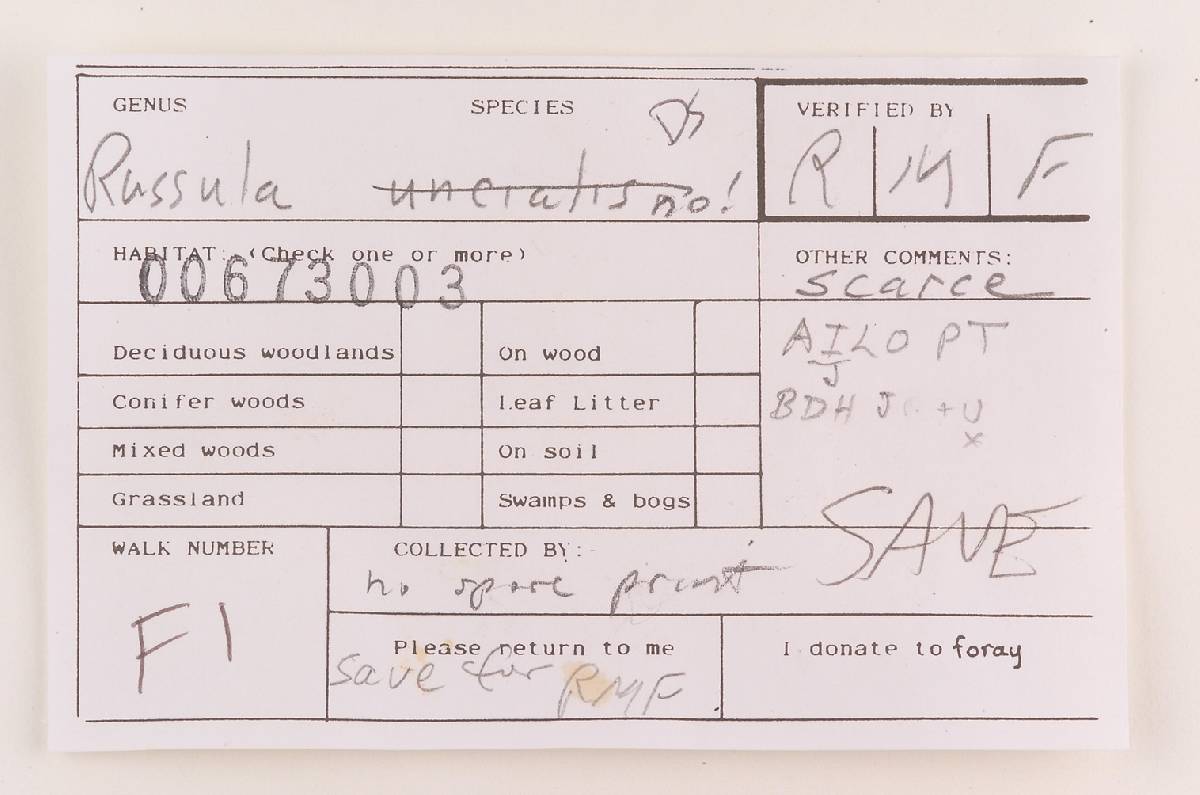 GENUS SPECIES DS
Russula uncialis no!
VERIFIED BY
R M F
HABITAT: (Check one or more)
00673003
OTHER COMMENTS:
scarce
AILO PT
J
BDH J + U
x
SAVE
Deciduous woodlands On wood
Conifer woods Leaf Litter
Mixed woods On soil
Grassland Swamps & bogs
WALK NUMBER
F1
COLLECTED BY:
no spore print
Please return to me
save for RMF
I donate to foray